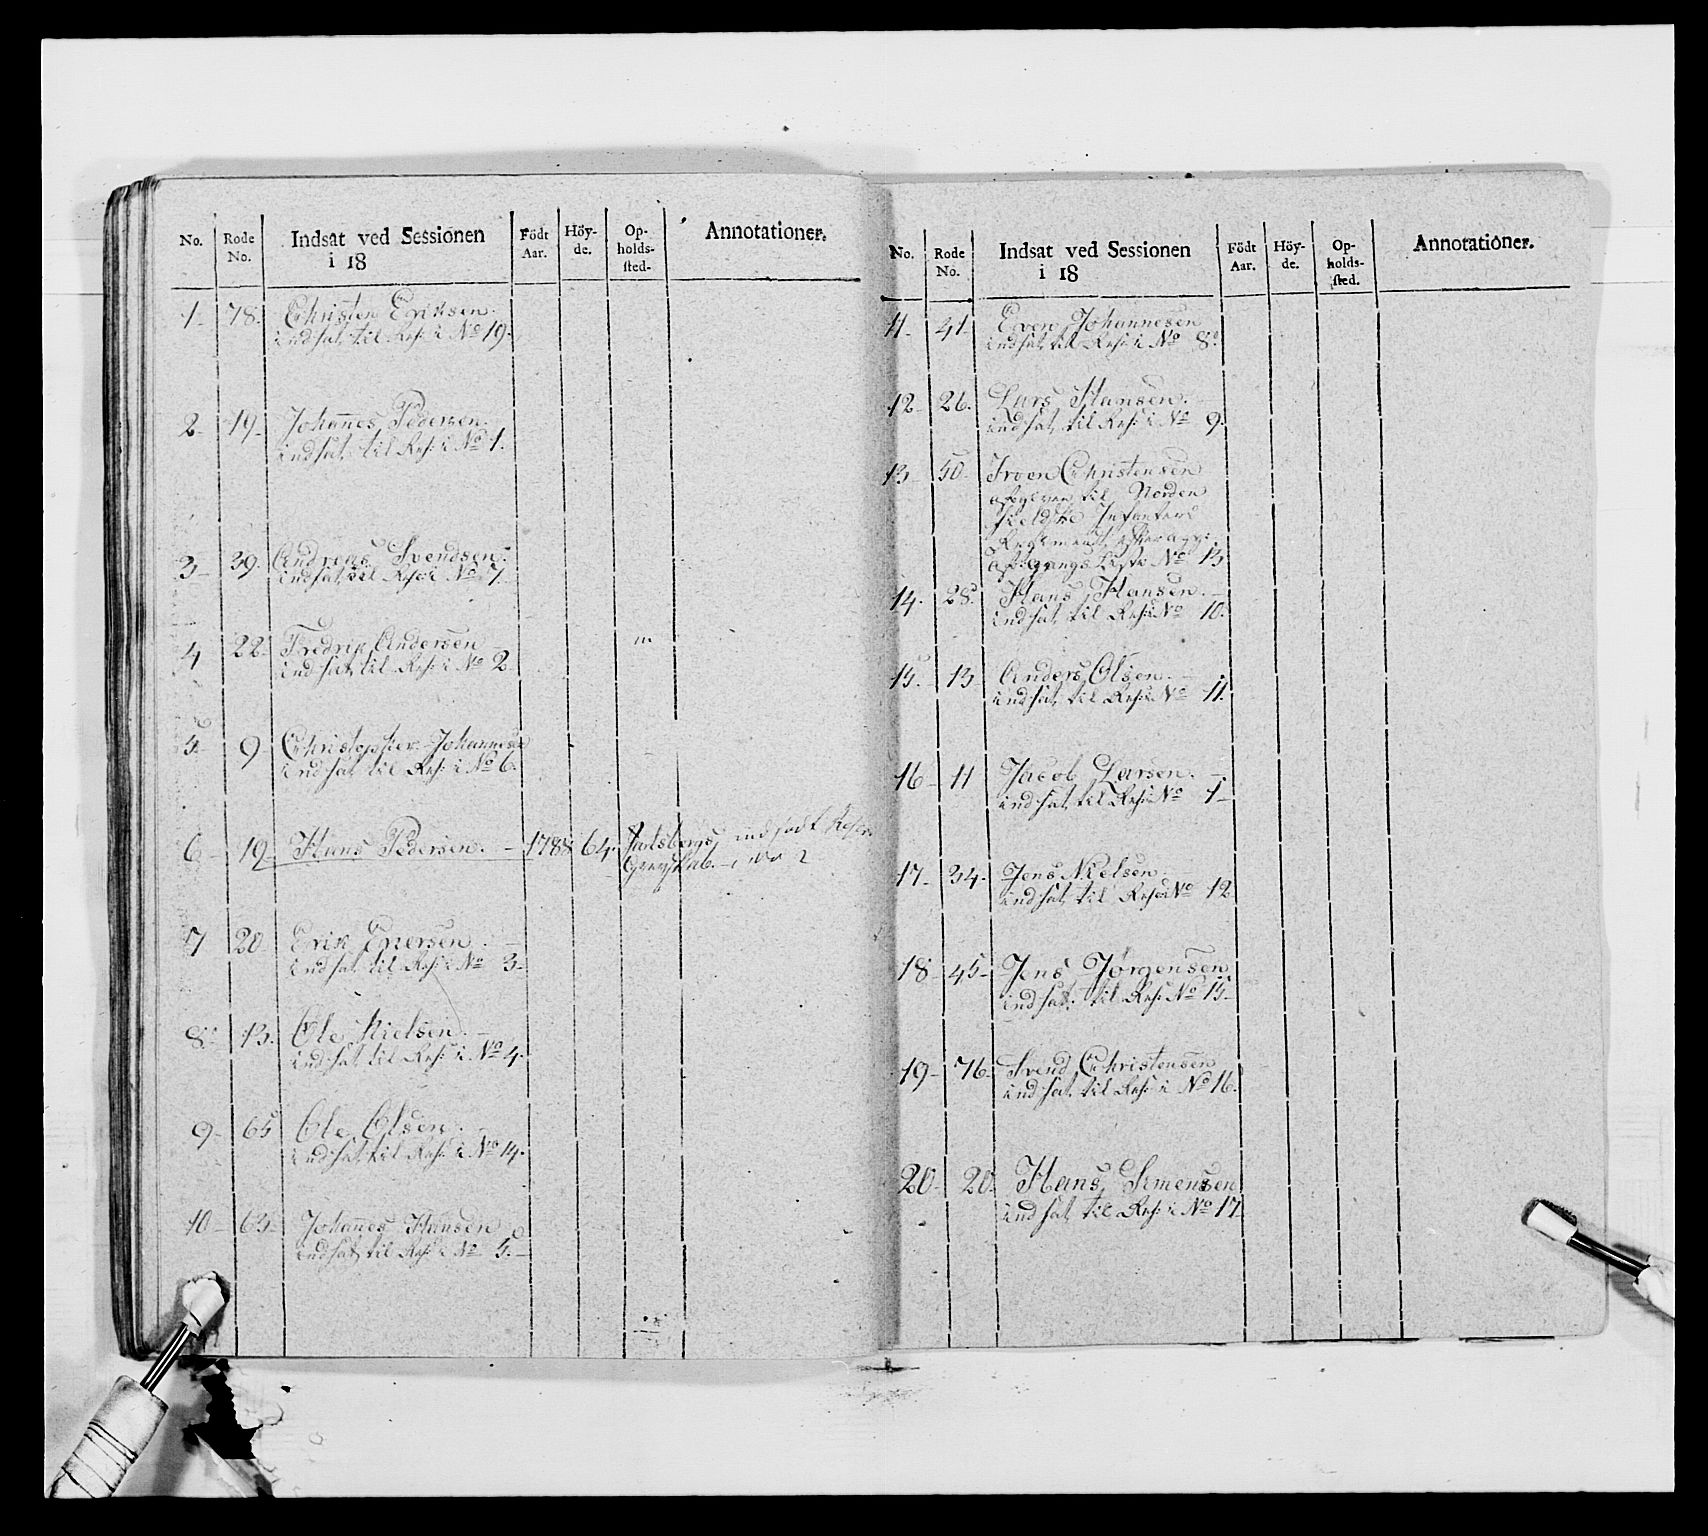 No. Rode No. Indsat ved Sessionen i 18 Födt Aar. Höy- de. Op- holds- sted. Annotationer.
1. 78. Christen Eriksen.
indsat til Res: i No 19.
2. 19. Johannes Pedersen.
indsat til Res: i No 1.
3. 39. Andreas Svendsen.
indsat til Res: i No 7.
4 22. Fredrik Andersen
indsat til Res: i No 2.
5. 9. Christopher Johannesen
indsat til Res: i No 6.
6. 19. Hans Pedersen. 1788 64. Jarlsbergs indsadt Reserv
Grevskab. i No 2
7 20 Erik Enersen.
indsat til Res: i No 3.
8. 13. Ole Nielsen.
indsat til Res: i No 4.
9. 65 Ole Olsen.
indsat til Res: i No 14.
10. 63. Johannes Hansen
indsat til Res: i No 5.
No. Rode No. Indsat ved Sessionen i 18 Födt Aar. Höy- de. Op- holds- sted. Annotationer.
11. 41. Even Johannesen
indsat til Res: i No 8.
12. 26. Lars Hansen.
indsat til Res: i No 9.
13. 50. Christensen
afgiven til Norden
fieldske Infanterie
Regiment, efter
afgangs Liste No 13
14. 28. Hans Hansen.
indsat til Res: i No 10.
15. 13. Anders Olsen.
indsat til Res: i No 11.
16. 11 Jacob Larsen.
indsat til Res: i No 1
17. 34. Jens Nielsen.
indsat til Res: i No 12
18 45. Jens Jørgensen
indsat til Res: No 15
19. 76. Svend Christensen
indsat til Res: i No 16.
20. 20. Hans Simensen
indsat til Res: i No 17.